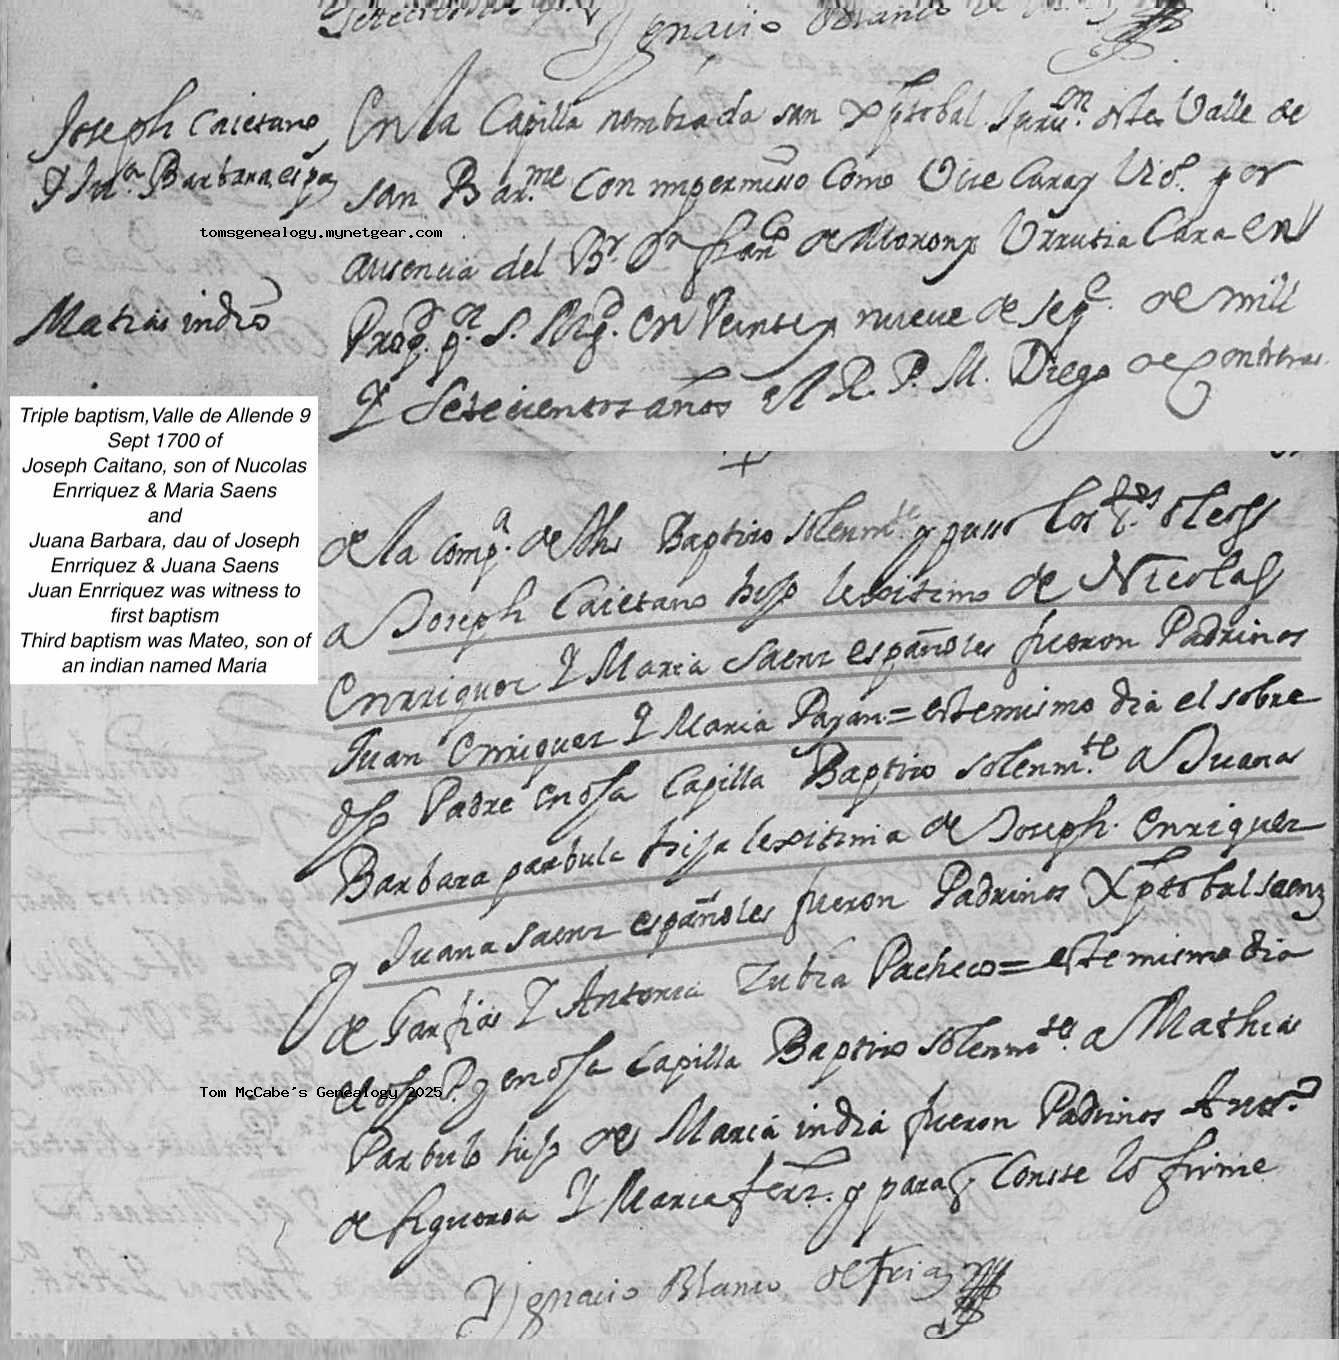 Ygnacio Blanco de
Joseph Caietano
Y Ju.ª Barbara, esp.
Matias indio
En la Capilla nombrada san Xptobal Juru.on deste Valle de
san Bar.me con mi permisso como Vice Cura y Vic.o por
ausencia del Br. Dn fran.co de Morony Urrutia Cura en
Prop.d p.r S. Mg.d en Veinte y nueve de sep.e de mill
Y Setecientos años el R. P. M. Diego de Contreras
Triple baptism,Valle de Allende 9
Sept 1700 of
Joseph Caitano, son of Nucolas
Enrriquez & Maria Saens
and
Juana Barbara, dau of Joseph
Enrriquez & Juana Saens
Juan Enrriquez was witness to
first baptism
Third baptism was Mateo, son of
an indian named Maria
de la Comp.ª de Jhs Baptizo solenm.te y puso los S.tos oleos
a Joseph Caietano hijo lexitimo de Nicolas
Enrriquez Y Maria Saenz españoles fueron Padrinos
Juan Enriquez Y Maria Payan = este mismo dia el sobre
dho Padre en dha Capilla Baptizo solenm.te a Juana
Barbara parbula hija lexitima de Joseph Enriquez
Y Juana saenz españoles fueron Padrinos Xptobal saenz
de Garfias Y Antonia Zubia Pacheco = este mismo dia
el dho P.e y en dha Capilla Baptizo solenm.te a Mathias
Parbulo hijo de Maria india fueron Padrinos Anto.o
de figueroa Y Maria ferz. y para q Conste lo firme
Ygnacio Blanco de frias
tomsgenealogy.mynetgear.com
Tom McCabe's Genealogy 2025